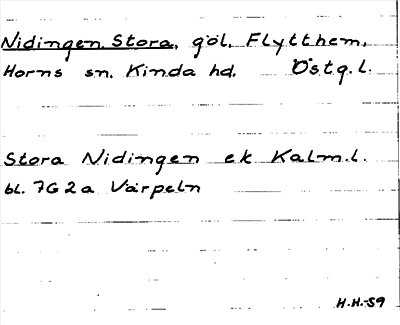 Nidingen, Stora, göl, Flytthem,
Horns sn. Kinda hd. Östg. l.
Stora Nidingen ek Kalm. l.
bl. 7G 2a Värpeln
H.H.-59